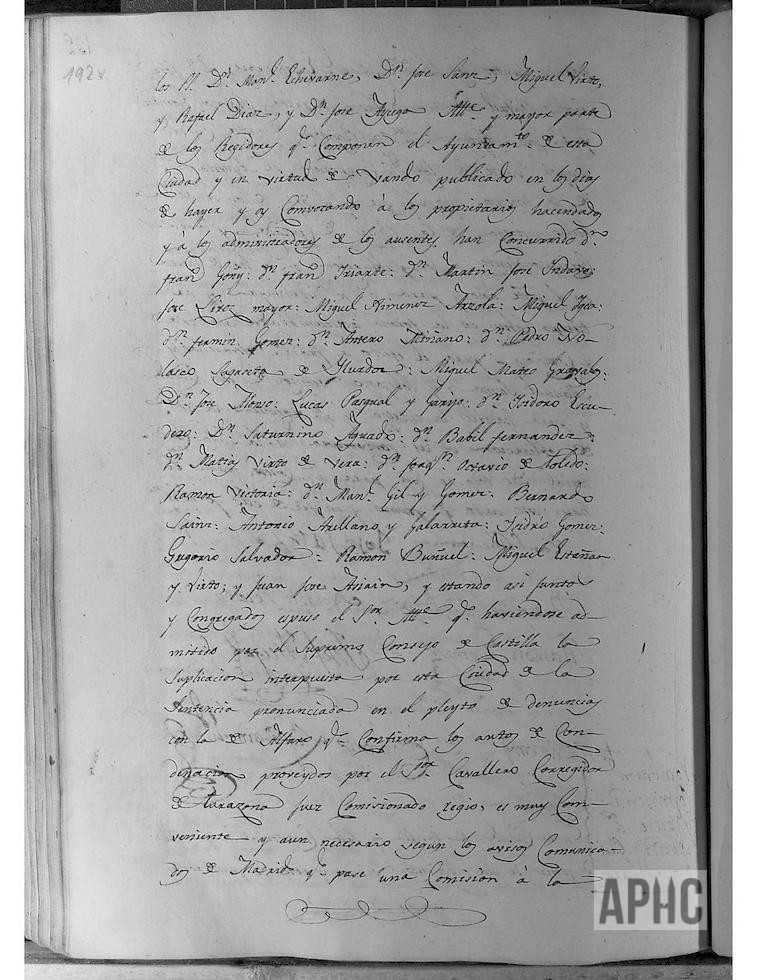 192v
los SS. Dn. Manl. Echevarne, Dn. Jose Sanz, Miguel Virto,
y Rafael Diaz, y Dn. Jose Ayega Alle. y mayor parte
de los Regidores qe. Componen el Ayuntamto. de esta
Ciudad y en virtud de Vando publicado en los dias
de hayer y oy Convocando à los propietarios hacendados
y a los administradores de los ausentes, han Concurrido dn.
franco Goñy: dn. franco Iriarte: dn. Martin Jose Indave:
Jose Liroz mayor: Miguel Ximenez Arzola: Miguel Igea:
dn. fermin Gomez: dn. Antero Miñano: dn. Pedro No-
lasco Sagaseta de Ylurdoz: Miguel Mateo Gravalos:
Dn. Jose Alonso: Lucas Pasqual y Garijo: dn. Isidoro Escu-
dero: Dn. Saturnino Aguado: dn. Babil fernandez:
dn. Matias Virto de Vera: dn. Joaqn. Octavio de Toledo:
Ramon Victoria: dn. Manl. Gil y Gomez: Bernardo
Sainz: Antonio Arellano y Galarreta: Isidro Gomez:
Gregorio Salvador: Ramon Buñuel: Miguel Estañan
y Virto; y Juan Jose Asiain, y estando asi juntos
y Congregados espuso el Sor. Alle. qe. haviendose ad-
mitido por el Supremo Consejo de Castilla la
Suplicacion interpuesta por esta Ciudad de la
Sentencia pronunciada en el pleyto de denuncias
con la de Alfaro qe. Confirma los autos de Con-
denacion proveydos por el Sor. Cavallero Corregidor
de Tarazona Juez Comisionado regio, es muy Com-
veniente y aun necesario segun los avisos Comunica-
dos de Madrid qe. pase una Comision à la
APHC